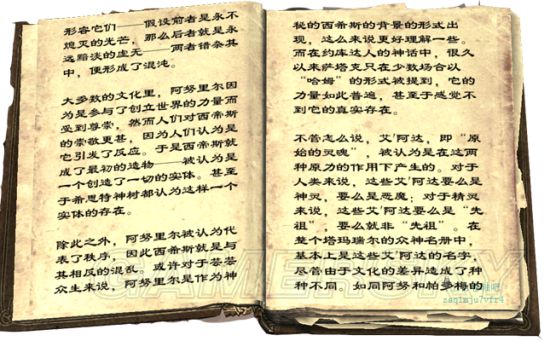 形容它们——假设前者是永不
熄灭的光芒，那么后者就是永
远黯淡的虚无——两者错杂其
中，便形成了混沌。
大多数的文化里，阿努里尔因
为是参与了创立世界的力量而
受到尊崇，然而人们对西帝斯
的崇敬更甚，因为人们认为是
它引发了反应。于是西帝斯就
成了最初的造物——被认为是
一个创造了一切的实体。甚至
于希思特神树都认为这样一个
实体的存在。
除此之外，阿努里尔被认为代
表了秩序，因此西希斯就是与
其相反的混乱。或许对于芸芸
众生来说，阿努里尔是作为神
秘的西希斯的背景的形式出
现，这么来说更好理解一些。
而在约库达人的神话中，很久
以来萨塔克只在少数场合以
“哈姆”的形式被提到，它的
力量如此普遍，甚至于感觉不
到它的真实存在。
不管怎么说，艾'阿达，即“原
始的灵魂”，被认为是在这两
种原力的作用下产生的。对于
人类来说，这些艾'阿达要么是
神灵，要么是恶魔；对于精灵
来说，这些艾'阿达要么是“先
祖”，要么就非“先祖”。在
整个塔玛瑞尔的众神名册中，
基本上是这些艾'阿达的名字，
尽管由于文化的差异造成了种
种不同。如同阿努和帕
GAMERSKY